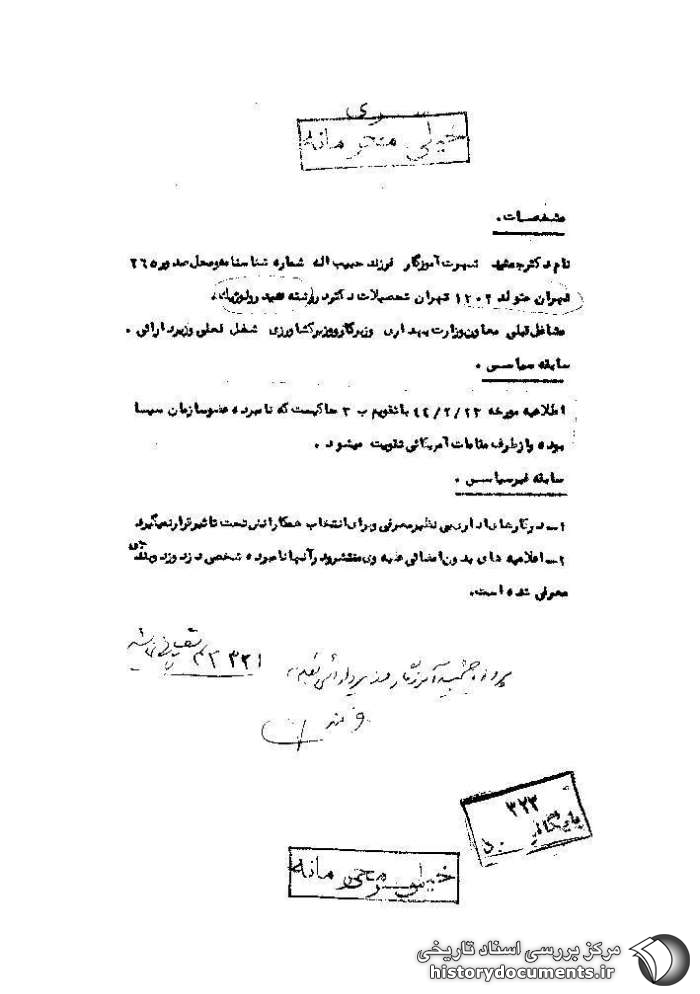 سری
خیلی محرمانه
مشخصات .
نام دکترجمشید شهرت آموزگار فرزند حبیب اله شماره شناسنامه ومحل صدور ۲٦۵
تهران متولد ۱۳۰۲ تهران تحصیلات دکتردررشته هیدرولوژیك .
مشاغل قبلی معاون وزارت بهداری وزیرکارووزیرکشاورزی شغل فعلی وزیردارائی .
سابقه سیاسی .
اطلاعیه مورخه ۴۴/۲/۲۳ بخش ۳ حاکیست که نامبرده عضوسازمان سیسا
بوده وازطرف مقامات آمریکائی تقویت میشود .
سابقه غیرسیاسی .
۱ــ درکارهای اداری بی نظیرمعرفی وبرای انتخاب همکارانش تحت تاثیرقرارنمیگیرد
۲ــ اطلاعیه های بدون امضائی علیه وی منتشرودرآنها نامبرده شخصی دزد وزدوبندچی
معرفی شده است.
پرونده جمشید آموزگار وزیر دارائی
۳۲۱
۳۲۳
بایگانی
خیلی محرمانه
مرکز بررسی اسناد تاریخی
historydocuments.ir